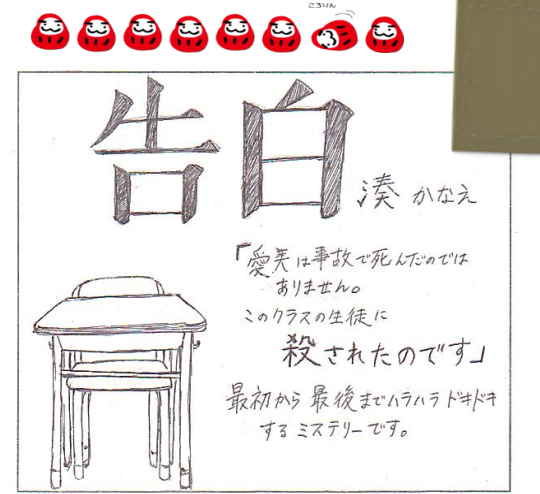 ころりん
告白
湊 かなえ
「愛美は事故で死んだのでは
ありません。
このクラスの生徒に
殺されたのです」
最初から最後までハラハラドキドキ
するミステリーです。